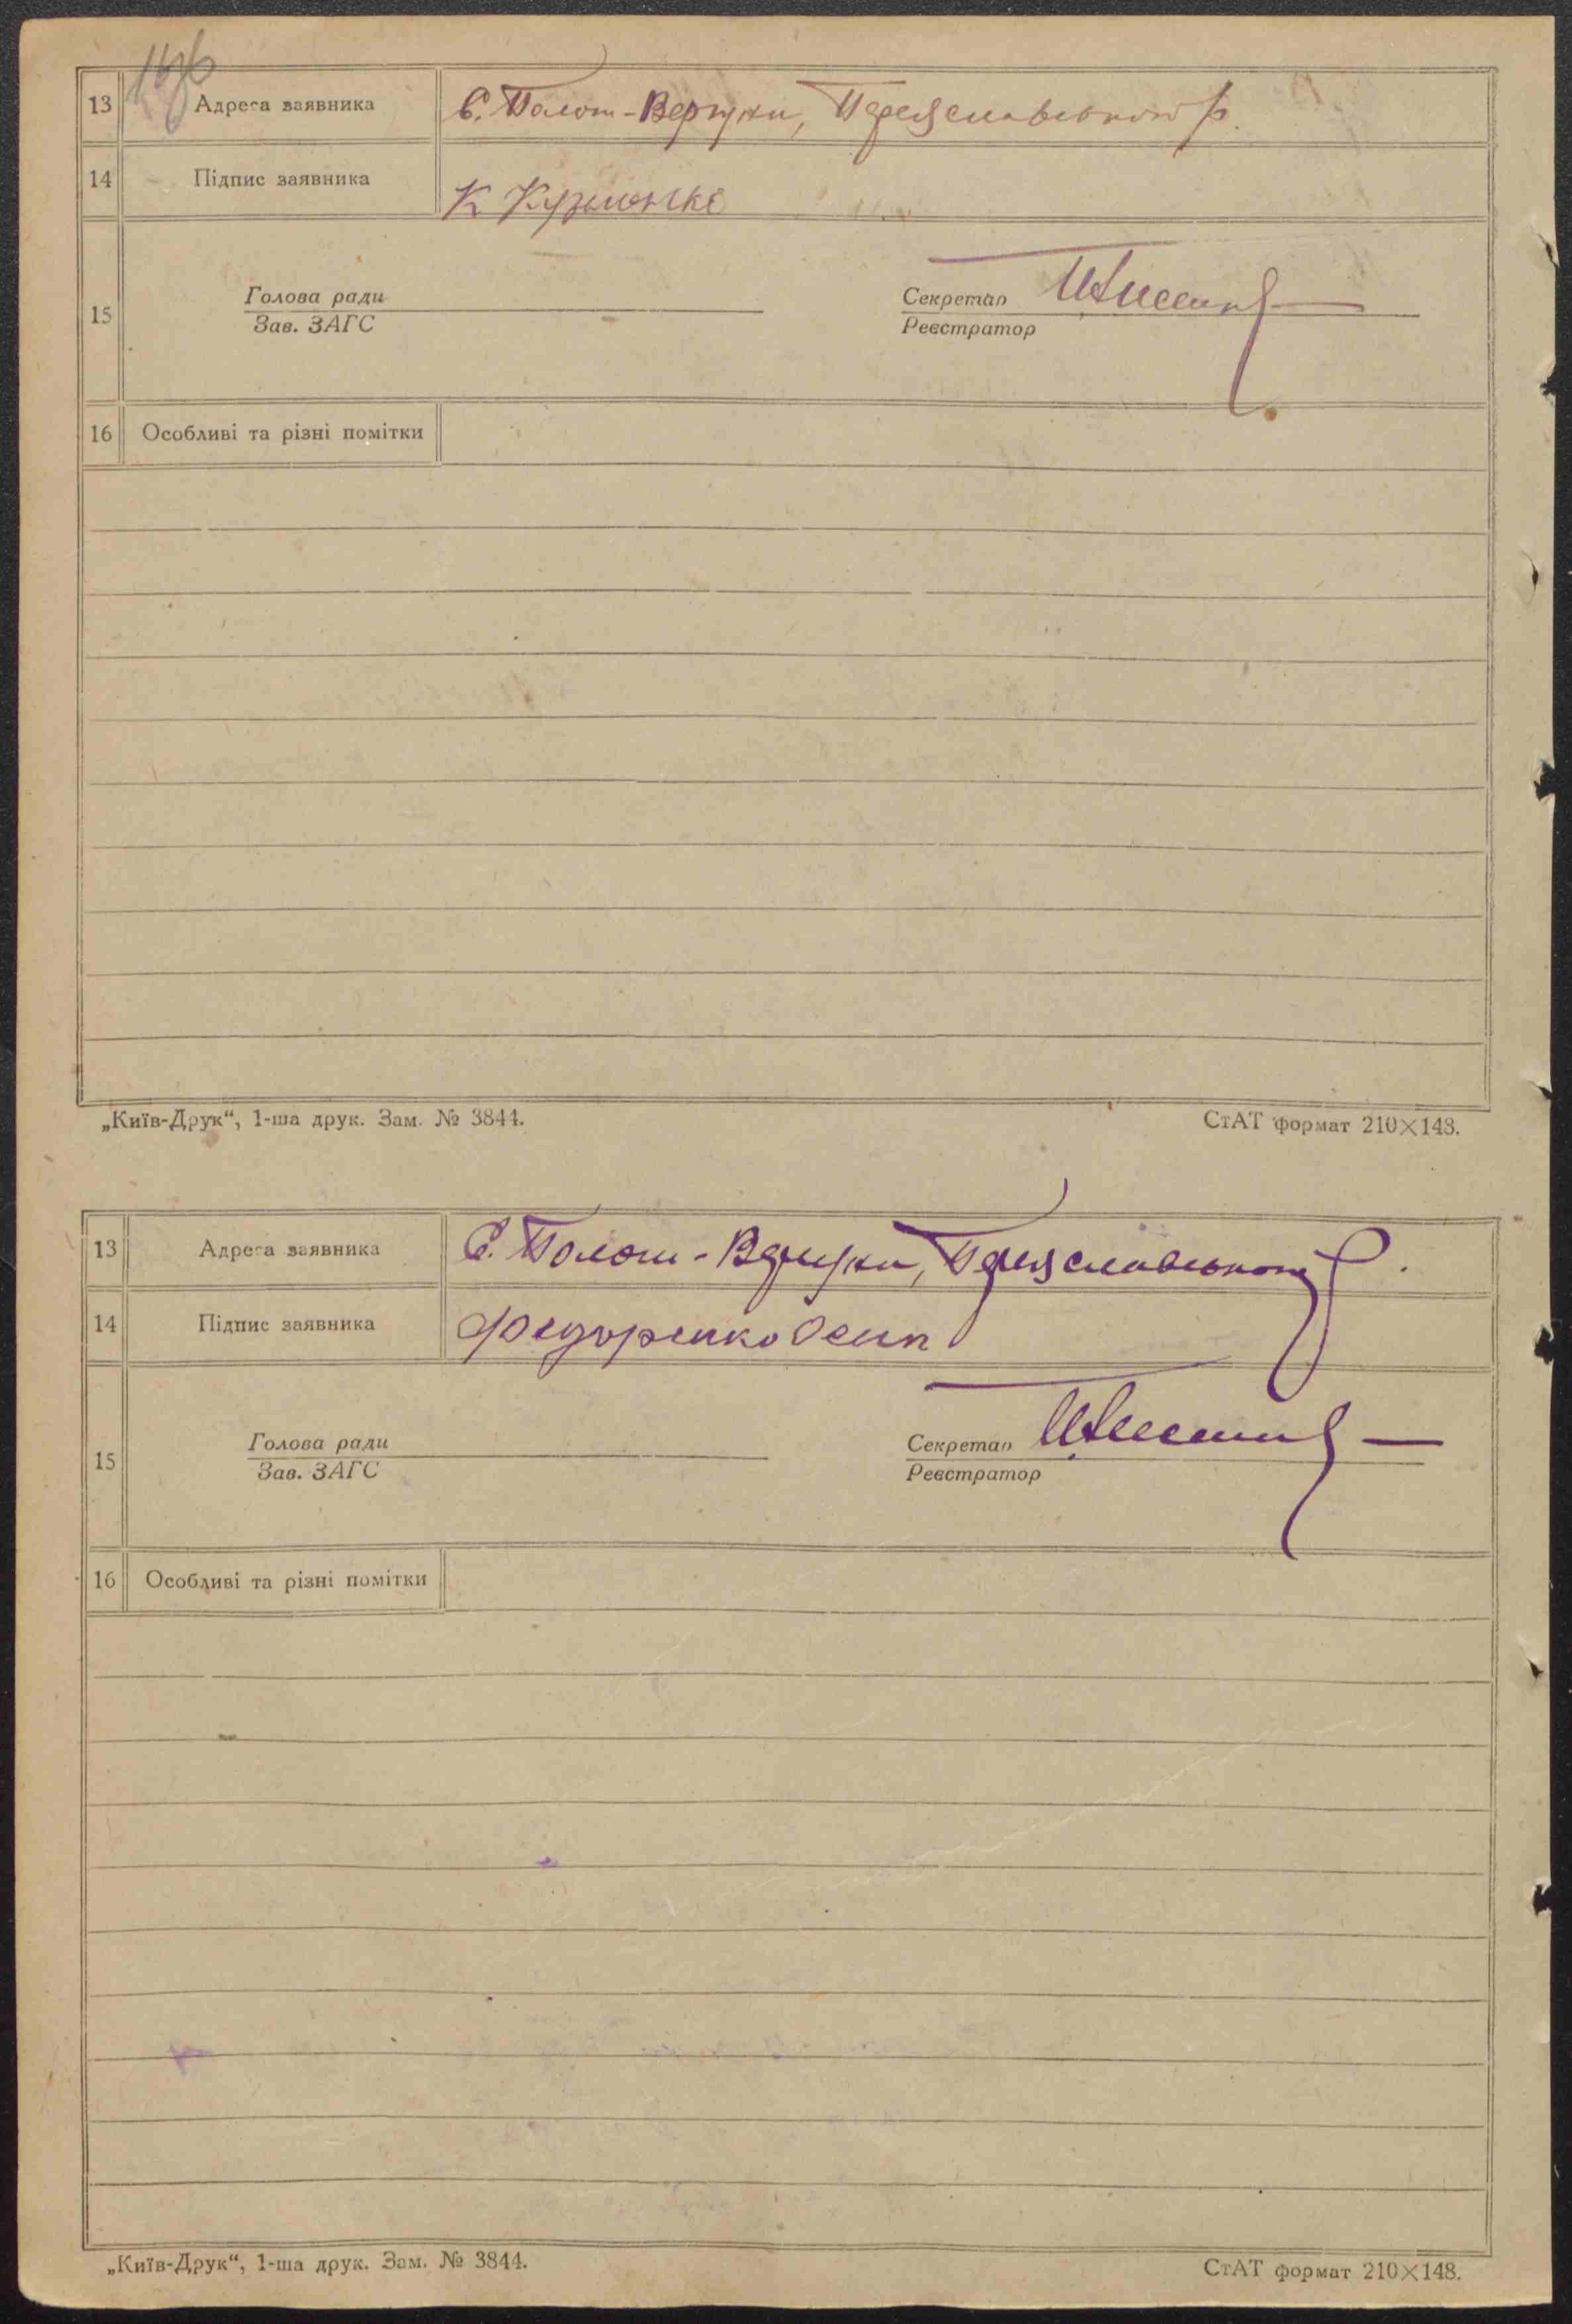 146
13 Адреса заявника С. Полог-Вергуни, Переяславського р.
14 Підпис заявника К Кузьменко
Голова ради Секретар
15
Зав. ЗАГС Реєстратор
16 Особливі та різні помітки
„Київ-Друк“, 1-ша друк. Зам. № 3844. СтАТ формат 210×148.
13 Адреса заявника С. Полог-Вергуни, Переяславського р.
14 Підпис заявника Федоренко Осип
Голова ради Секретар
15
Зав. ЗАГС Реєстратор
16 Особливі та різні помітки
„Київ-Друк“, 1-ша друк. Зам. № 3844. СтАТ формат 210×148.